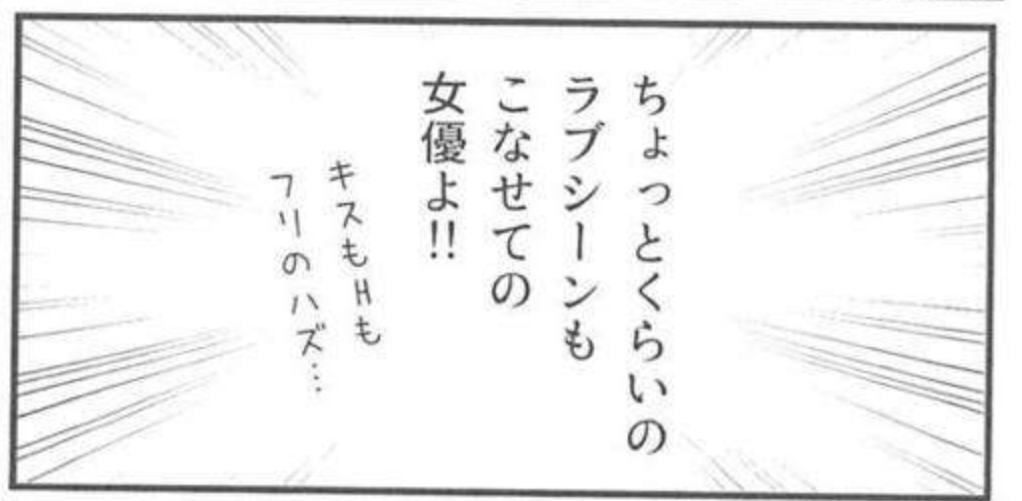 ちょっとくらいの
ラブシーンも
こなせての
女優よ!!
キスもHも
フリのハズ…